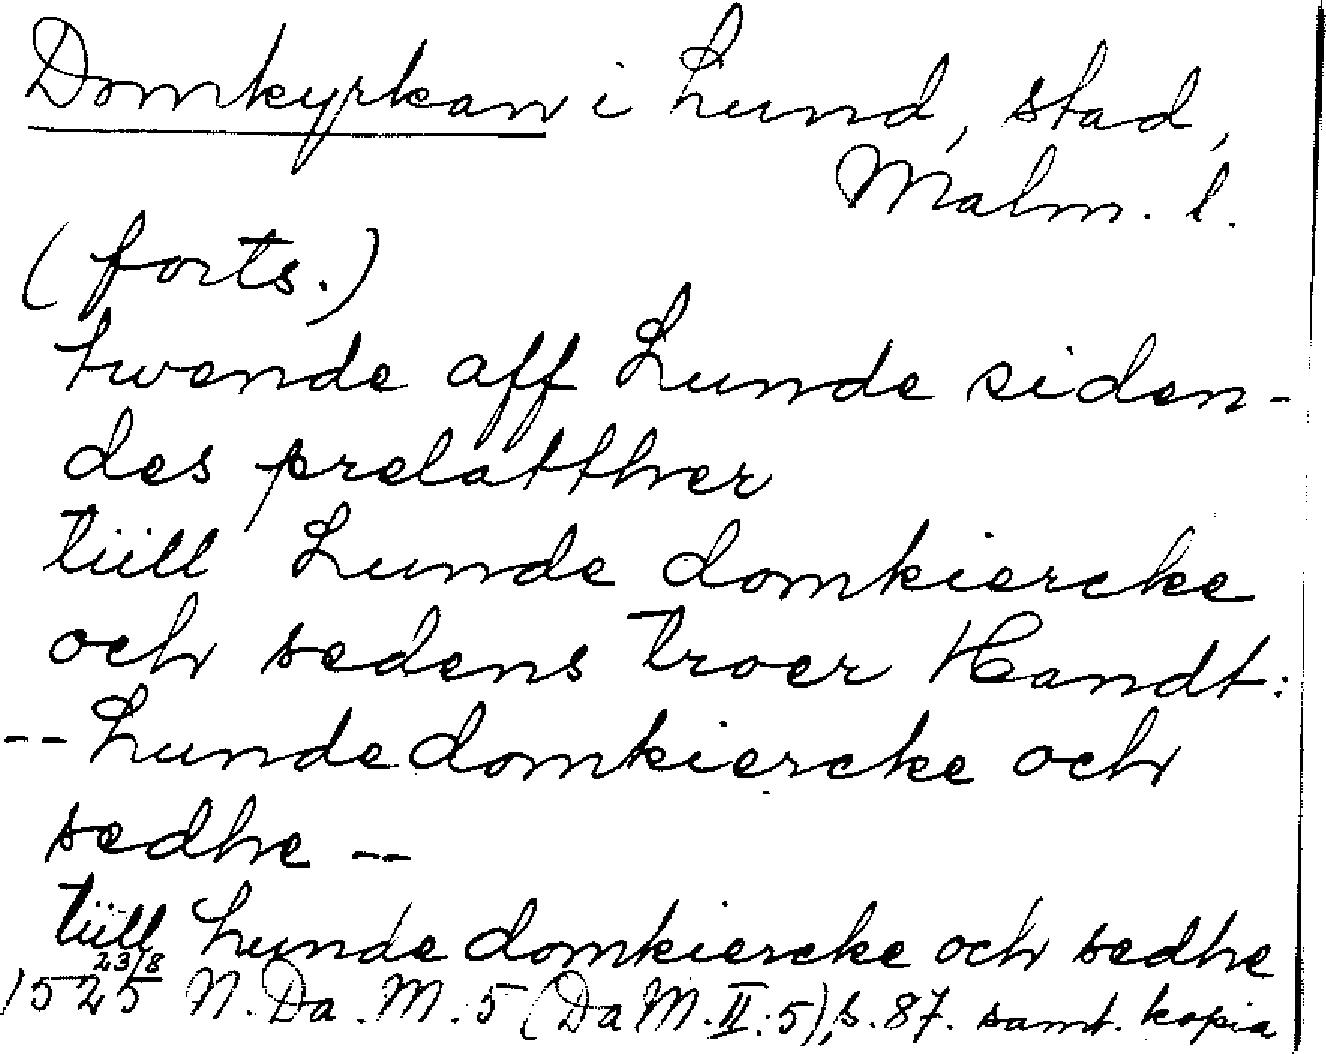 Domkyrkan i Lund, stad,
Malm. l.
(forts.)
twende aff Lunde siden-
des prelatther
tiill Lunde domkiercke
och sedens troer Handt:
-- Lunde domkiercke och
sedhe --
tiill Lunde domkiercke och sedhe
1525 23/8 N. Da. M. 5 (Da M. II:5), s. 87. samt. kopia